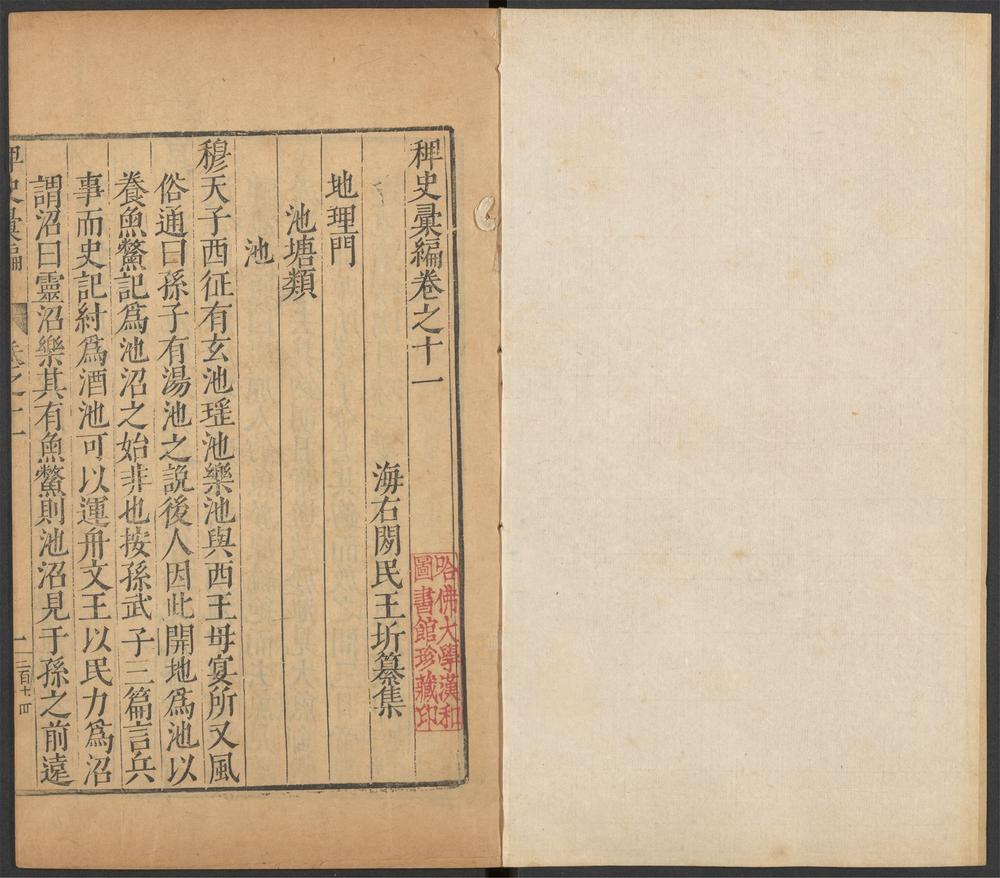 稗史彙編卷之十一
海右閒民王圻纂集
哈佛大學漢和
圖書館珍藏印
地理門
池塘類
池
穆天子西征有玄池瑤池樂池與西王母宴所又風
俗通曰孫子有湯池之說後人因此開地爲池以
養魚鱉記爲池沼之始非也按孫武子三篇言兵
事而史記紂爲酒池可以運舟文王以民力爲沼
謂沼曰靈沼樂其有魚鱉則池沼見于孫之前遠
史彙編
卷之十一
一
三百十四